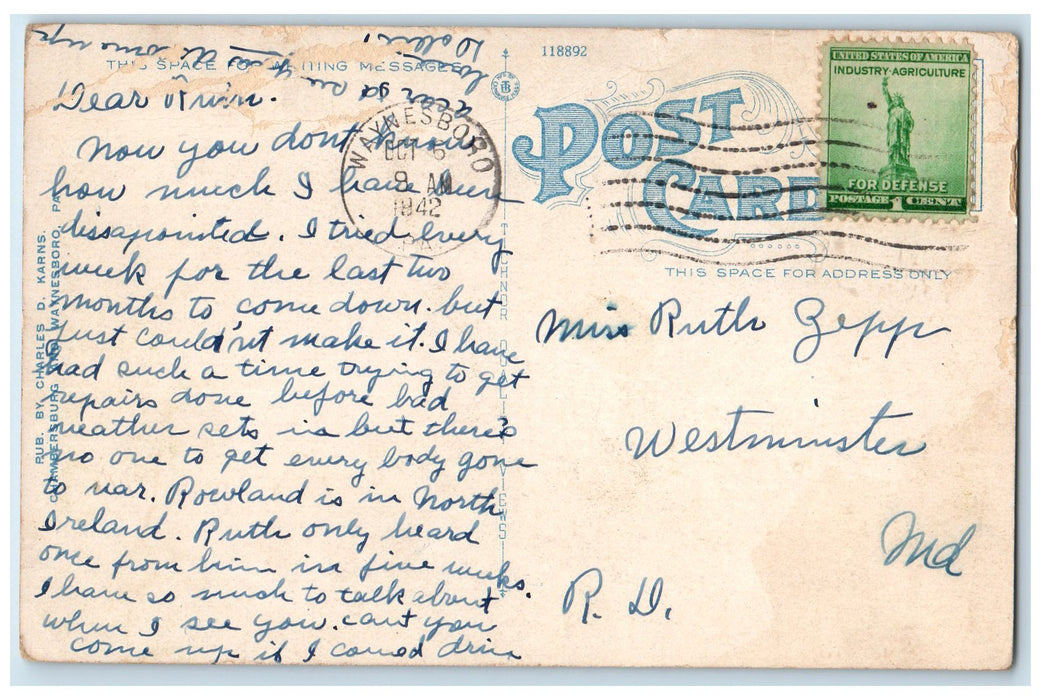 THIS SPACE FOR WRITING MESSAGES
Dear
Now you dont know
how much I have been
dissapointed. I tried every
week for the last two
months to come down. but
Just could'nt make it. I have
had such a time trying to get
repairs done before bad
weather sets in but there's
no one to get every body gone
to war. Rowland is in North
Ireland. Ruth only heard
once from him in five weeks.
I have so much to talk about
when I see you. cant you
come up if I comed drive
a car
PUB. BY CHARLES D. KARNS,
CHAMBERSBURG AND WAYNESBORO, PA.
TICHNOR QUALITY VIEWS
118892
POST CARD
WAYNESBORO
OCT 6
9 AM
1942
PA.
UNITED STATES OF AMERICA
INDUSTRY·AGRICULTURE
FOR DEFENSE
POSTAGE 1 CENT
THIS SPACE FOR ADDRESS ONLY
Miss Ruth Zepp
Westminster
Md
R. D.